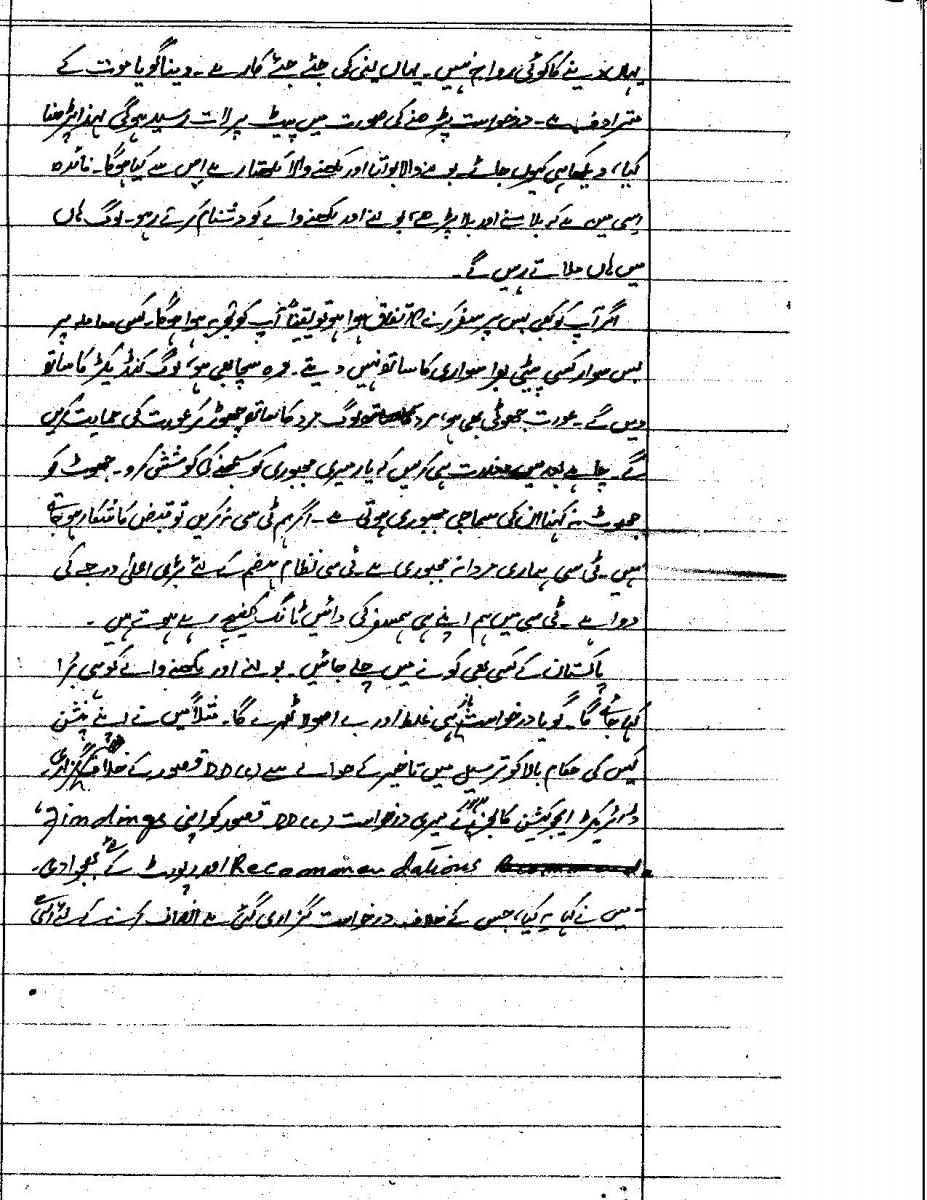 یہاں دینے کا کوئی رواج نہیں۔ یہاں لینی کی جئے جئے کار ہے۔ دینا گویا موت کے
مترادف ہے۔ درخواست پڑھنے کی صورت میں پیٹ پر لات رسید ہو گی لہذا پڑھنا
کیا، دیکھا ہی کیوں جائے۔ بولنے والا بولتا اور لکھنے والا لکھتا رہے اس سے کیا ہو گا۔ فائدہ
اسی میں ہے کہ بلا سنے اور بلا پڑھے، بولنے اور لکھنے والے کو دشنام کرتے رہو۔ لوگ ہاں
میں ہاں ملاتے رہیں گے۔
اگر آپ کو کبھی بس پر سفر کرنے کا اتفاق ہوا ہو تو یقیناً آپ کو تجربہ ہوا ہو گا۔ کسی معاملہ پر
بس سوار کسی بیٹی سواری کا ساتھ نہیں دیتے۔ وہ سچا بھی ہو، لوگ کنڈیکٹر کا ساتھ
دیں گے۔ عورت جھوٹی بھی ہو، لوگ مرد کا ساتھ چھوڑ کر عورت کی حمایت کریں
گے۔ چاہے بعد میں معذرت ہی کریں کہ یار میری مجبوری کو سمجھنے کی کوشش کرو۔ جھوٹ کو
جھوٹ نہ کہنا ان کی سماجی مجبوری ہوتی ہے۔ اگر ہم ٹی سی نہ کریں تو قبض کا شکار ہو جاتے
ہیں۔ ٹی سی ہماری مردانہ مجبوری ہے۔ ٹی سی نظام ہضم کے لئے بڑی اعلیٰ درجے کی
دوا ہے۔ ٹی سی میں ہم اپنے ہی ہمسفر کی دائیں ٹانگ کھینچ رہے ہوتے ہیں۔
پاکستان کے کسی بھی کونے میں چلے جائیں۔ بولنے اور لکھنے والے کو ہی برا
کہا جائے گا۔ گویا درخواست باز ہی غلط اور بے اصولا ٹھہرے گا۔ مثلاً میں نے اپنے پنشن
کیس کی حکام بالا کو ترسیل میں تاخیر کے حوالے سے DD(c) قصور کے خلاف درخواست گزاری۔
ڈائریکٹر ایجوکیشن کالجز لاہور نے میری درخواست DD(c) قصور کو اپنی Findings،
Recommendations اور رپورٹ کے لئے بھجوا دی۔
میں نے کہا یہ کیا، جس کے خلاف درخواست گزاری گئی ہے انصاف کرنے کے لئے اسی